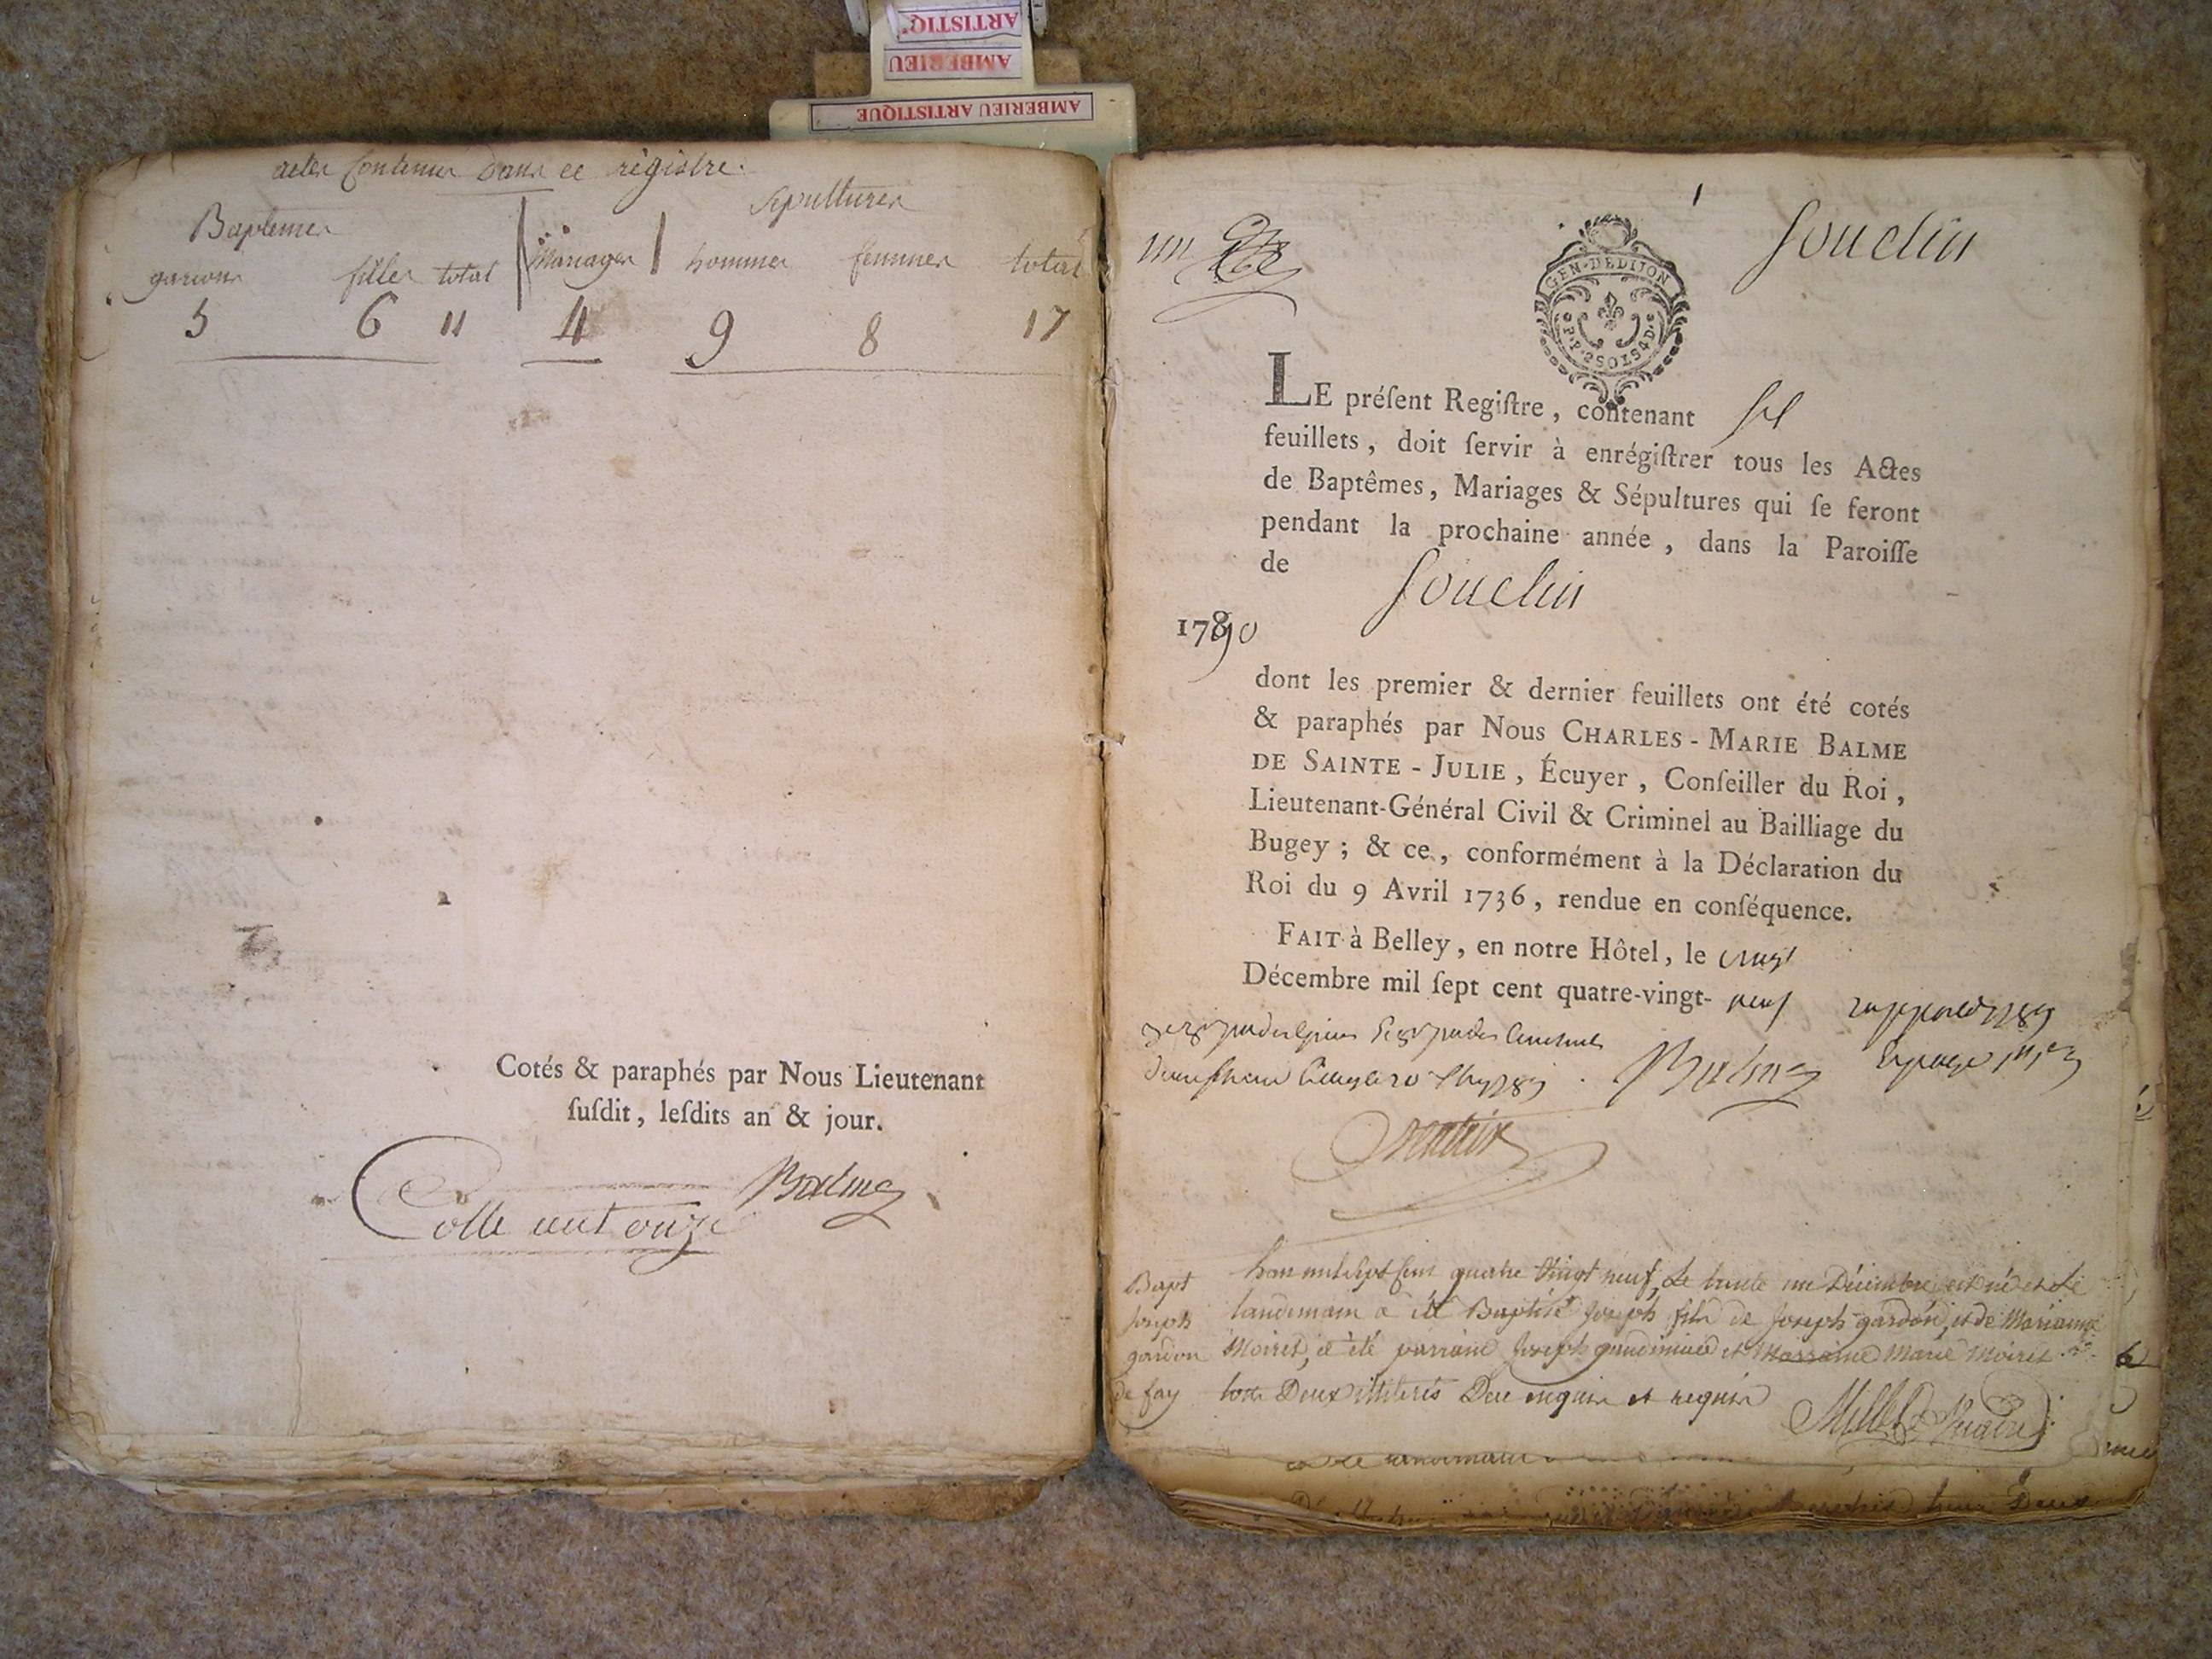 ARTISTIQ
AMBERIEU
AMBERIEU ARTISTIQUE
actes Contenus Dans ce régistre.
Baptemes
Mariages
Sepultures
garcons filles total
hommes femmes total
5 6 11 4 9 8 17
Cotés & paraphés par Nous Lieutenant
ſuſdit, leſdits an & jour.
Balme
Cotte cent onze
1
un
Souclin
GEN. DE DIJON
P.P. 2 SOLS 4 D.
LE préſent Regiſtre, contenant six
feuillets, doit ſervir à enrégiſtrer tous les Actes
de Baptêmes, Mariages & Sépultures qui ſe feront
pendant la prochaine année, dans la Paroiſſe
de Souclin
1790
dont les premier & dernier feuillets ont été cotés
& paraphés par Nous CHARLES-MARIE BALME
DE SAINTE-JULIE, Écuyer, Conſeiller du Roi,
Lieutenant-Général Civil & Criminel au Bailliage du
Bugey; & ce, conformément à la Déclaration du
Roi du 9 Avril 1736, rendue en conſéquence.
FAIT à Belley, en notre Hôtel, le vingt
Décembre mil ſept cent quatre-vingt-neuf
Balme
Bapt
Joseph
gardon
de fay
Lan mil sept cent quatre vingt neuf, Le trente un Décembre est né et le
landemain a été Baptisé Joseph fils de Joseph gardon, et de Marianne
Moiret, a été parrain Joseph et Marraine Marie Moiret
tous Deux illiterés De enquis et requis
Millet Vicaire